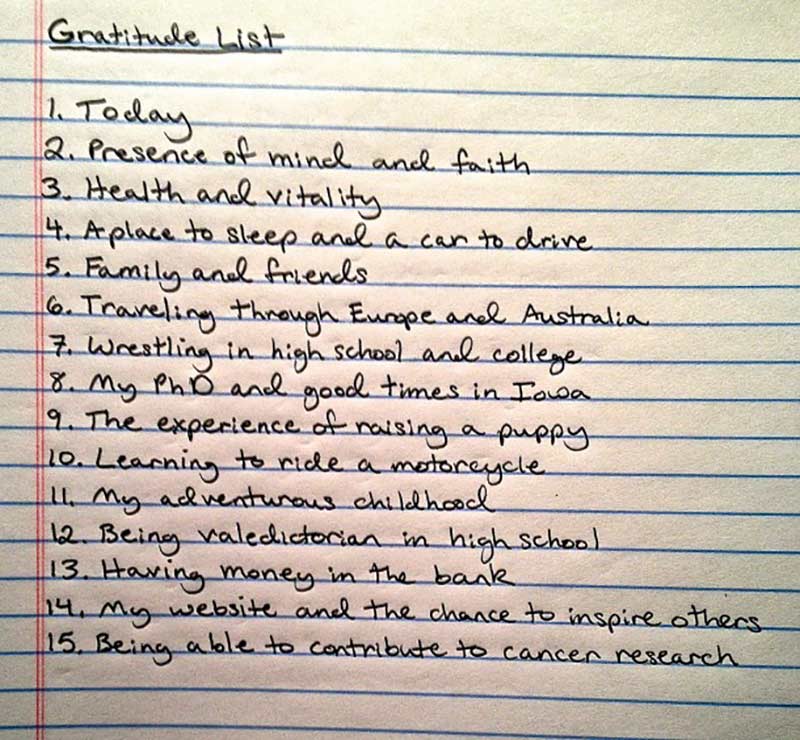 Gratitude List
1. Today
2. Presence of mind and faith
3. Health and vitality
4. A place to sleep and a car to drive
5. Family and friends
6. Traveling through Europe and Australia
7. Wrestling in high school and college
8. My PhD and good times in Iowa
9. The experience of raising a puppy
10. Learning to ride a motorcycle
11. My adventurous childhood
12. Being valedictorian in high school
13. Having money in the bank
14. My website and the chance to inspire others
15. Being able to contribute to cancer research